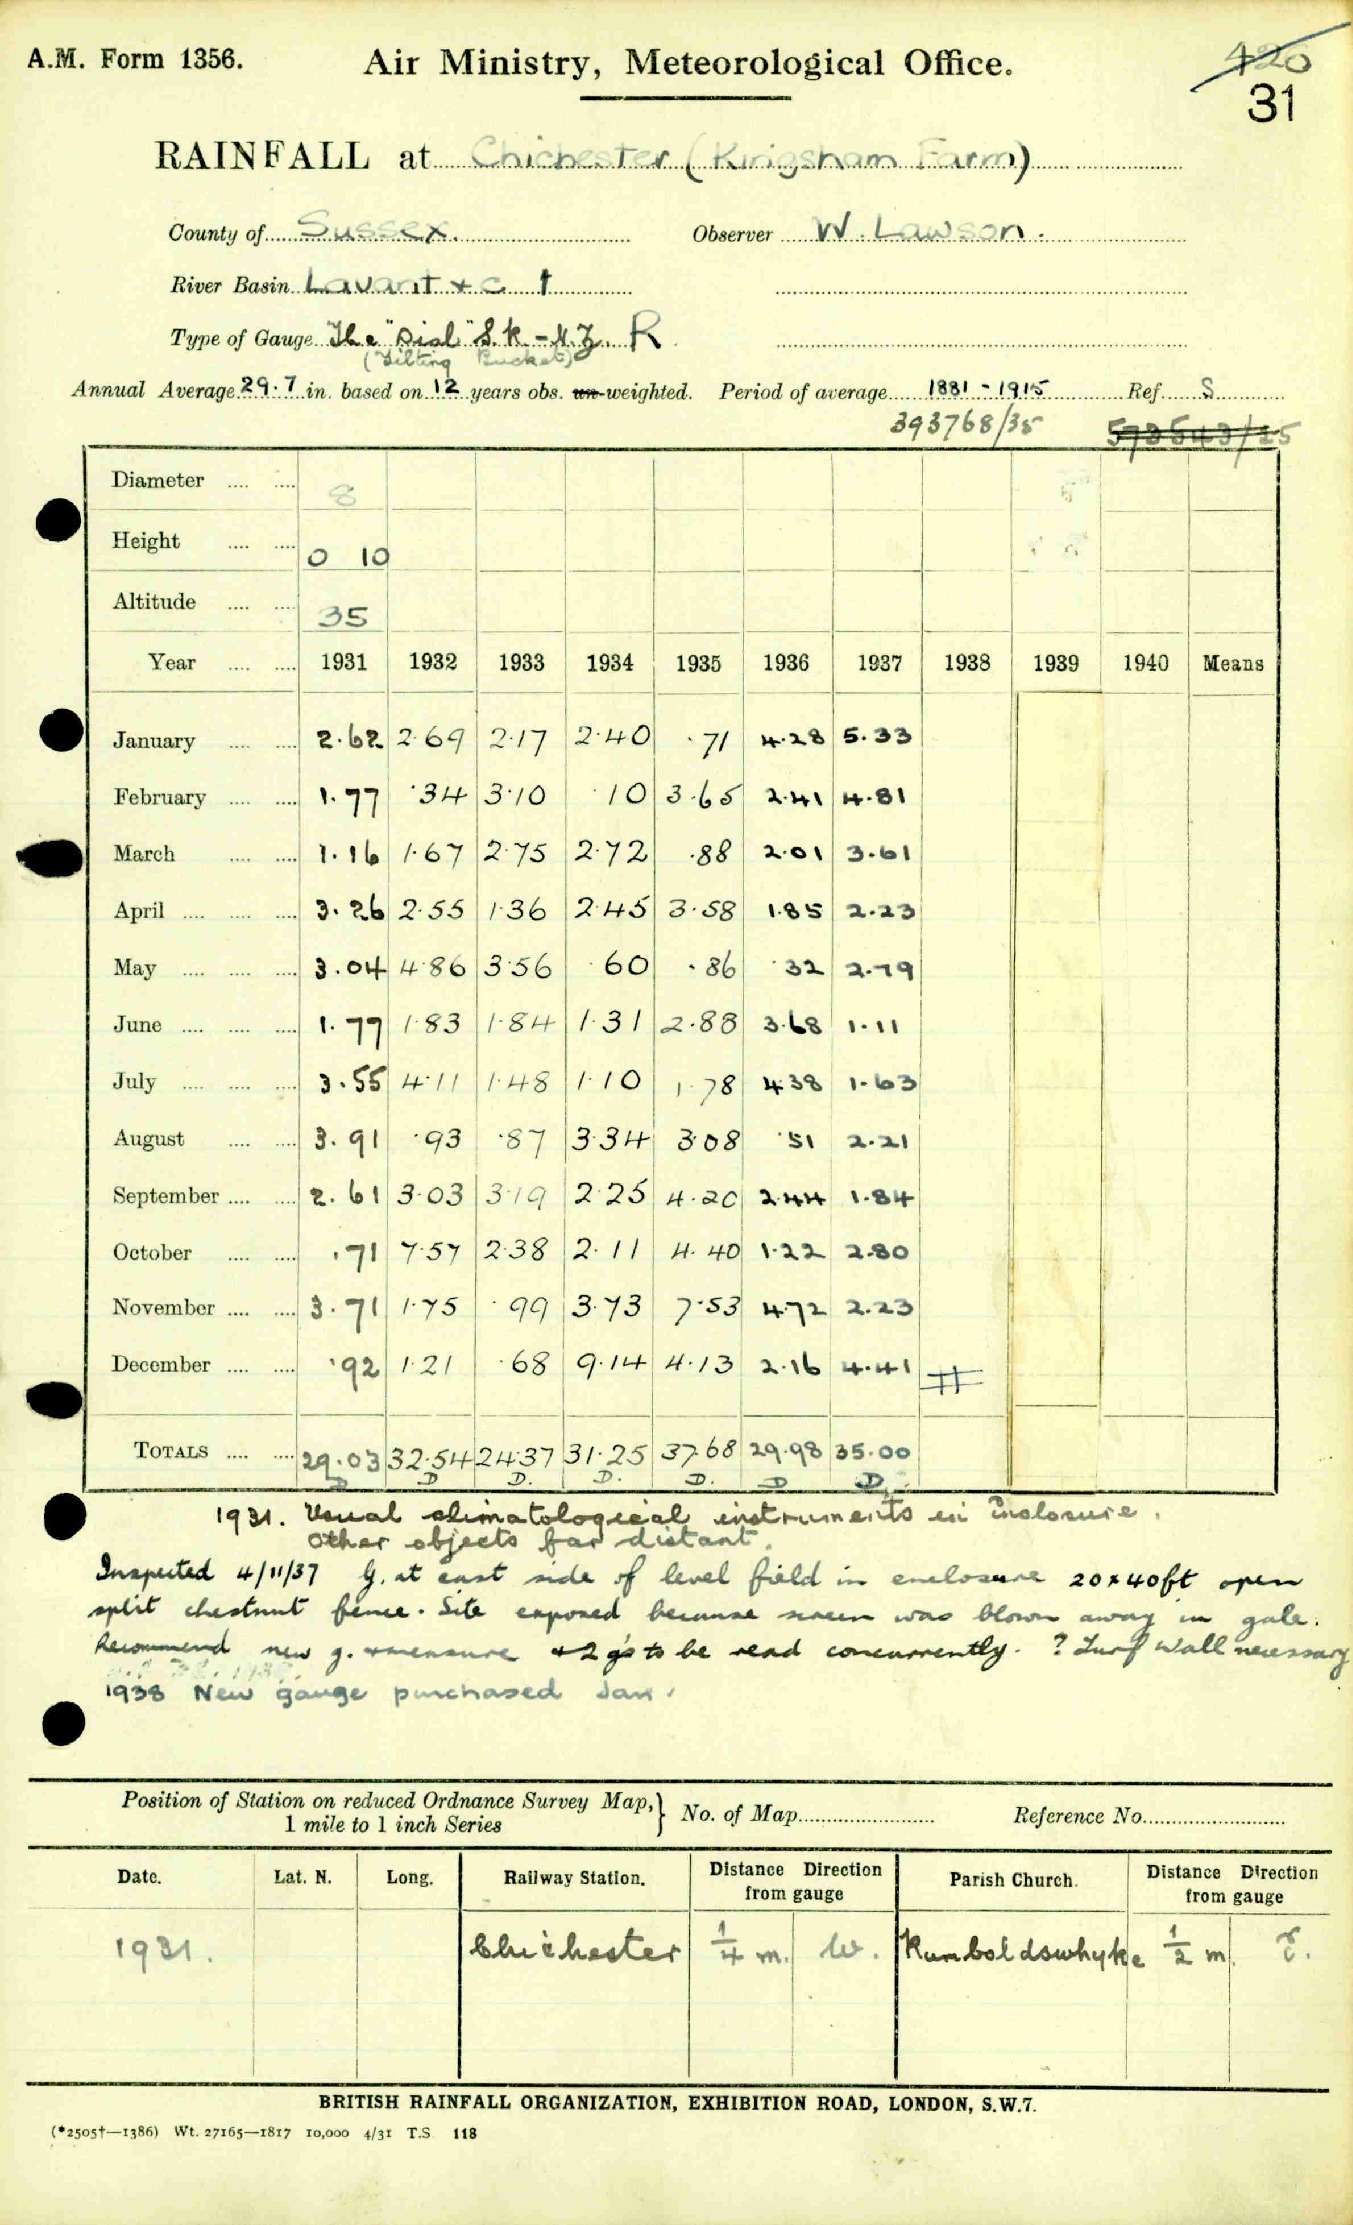 A.M. Form 1356.
Air Ministry, Meteorological Office.
420
31
RAINFALL at Chichester (Kingsham Farm)
County of Sussex. Observer W. Lawson.
River Basin Lavant + c †
Type of Gauge The "Dial" S.K. - N.Z. R
(Tilting Bucket)
Annual Average 29.7 in. based on 12 years obs. un-weighted. Period of average 1881 - 1915 Ref. S
393768/35 573543/25
Diameter .... .... 8
Height .... .... 0 10
Altitude .... .... 35
Year .... .... 1931 1932 1933 1934 1935 1936 1937 1938 1939 1940 Means
January .... .... 2.62 2.69 2.17 2.40 .71 4.28 5.33
February .... .... 1.77 .34 3.10 .10 3.65 2.41 4.81
March .... .... 1.16 1.67 2.75 2.72 .88 2.01 3.61
April .... .... .... 3.26 2.55 1.36 2.45 3.58 1.85 2.23
May .... .... .... 3.04 4.86 3.56 .60 .86 .32 2.79
June .... .... .... 1.77 1.83 1.84 1.31 2.88 3.68 1.11
July .... .... .... 3.55 4.11 1.48 1.10 1.78 4.38 1.63
August .... .... 3.91 .93 .87 3.34 3.08 .51 2.21
September .... .... 2.61 3.03 3.19 2.25 4.20 2.44 1.84
October .... .... .71 7.57 2.38 2.11 4.40 1.22 2.80
November .... .... 3.71 1.75 .99 3.73 7.53 4.72 2.23
December .... .... .92 1.21 .68 9.14 4.13 2.16 4.41
TOTALS .... .... 29.03 32.54 24.37 31.25 37.68 29.98 35.00
D D D. D. D. D D
1931. Usual climatological instruments in Inclosure.
Other objects far distant.
Inspected 4/11/37 G. at east side of level field in enclosure 20 x 40ft open
split chestnut fence. Site exposed because screen was blown away in gale.
Recommend new g. + measure + 2 g's to be read concurrently. ? Turf Wall necessary
1938 New gauge purchased Jan.
Position of Station on reduced Ordnance Survey Map,} No. of Map Reference No.
1 mile to 1 inch Series
Date. Lat. N. Long. Railway Station. Distance Direction from gauge Parish Church. Distance Direction from gauge
1931. Chichester 1/4 m. W. Rumboldswhyke 1/2 m.
BRITISH RAINFALL ORGANIZATION, EXHIBITION ROAD, LONDON, S.W.7.
(*2505†—1386) Wt. 27165—1817 10,000 4/31 T.S. 118